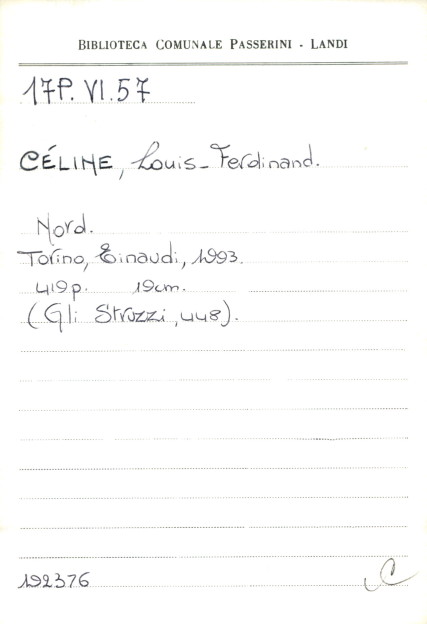 BIBLIOTECA COMUNALE PASSERINI - LANDI
17P. VI. 57
CÉLINE, Louis-Ferdinand.
Nord.
Torino, Einaudi, 1993.
419p. 19cm.
(Gli Struzzi, 448).
192376 C